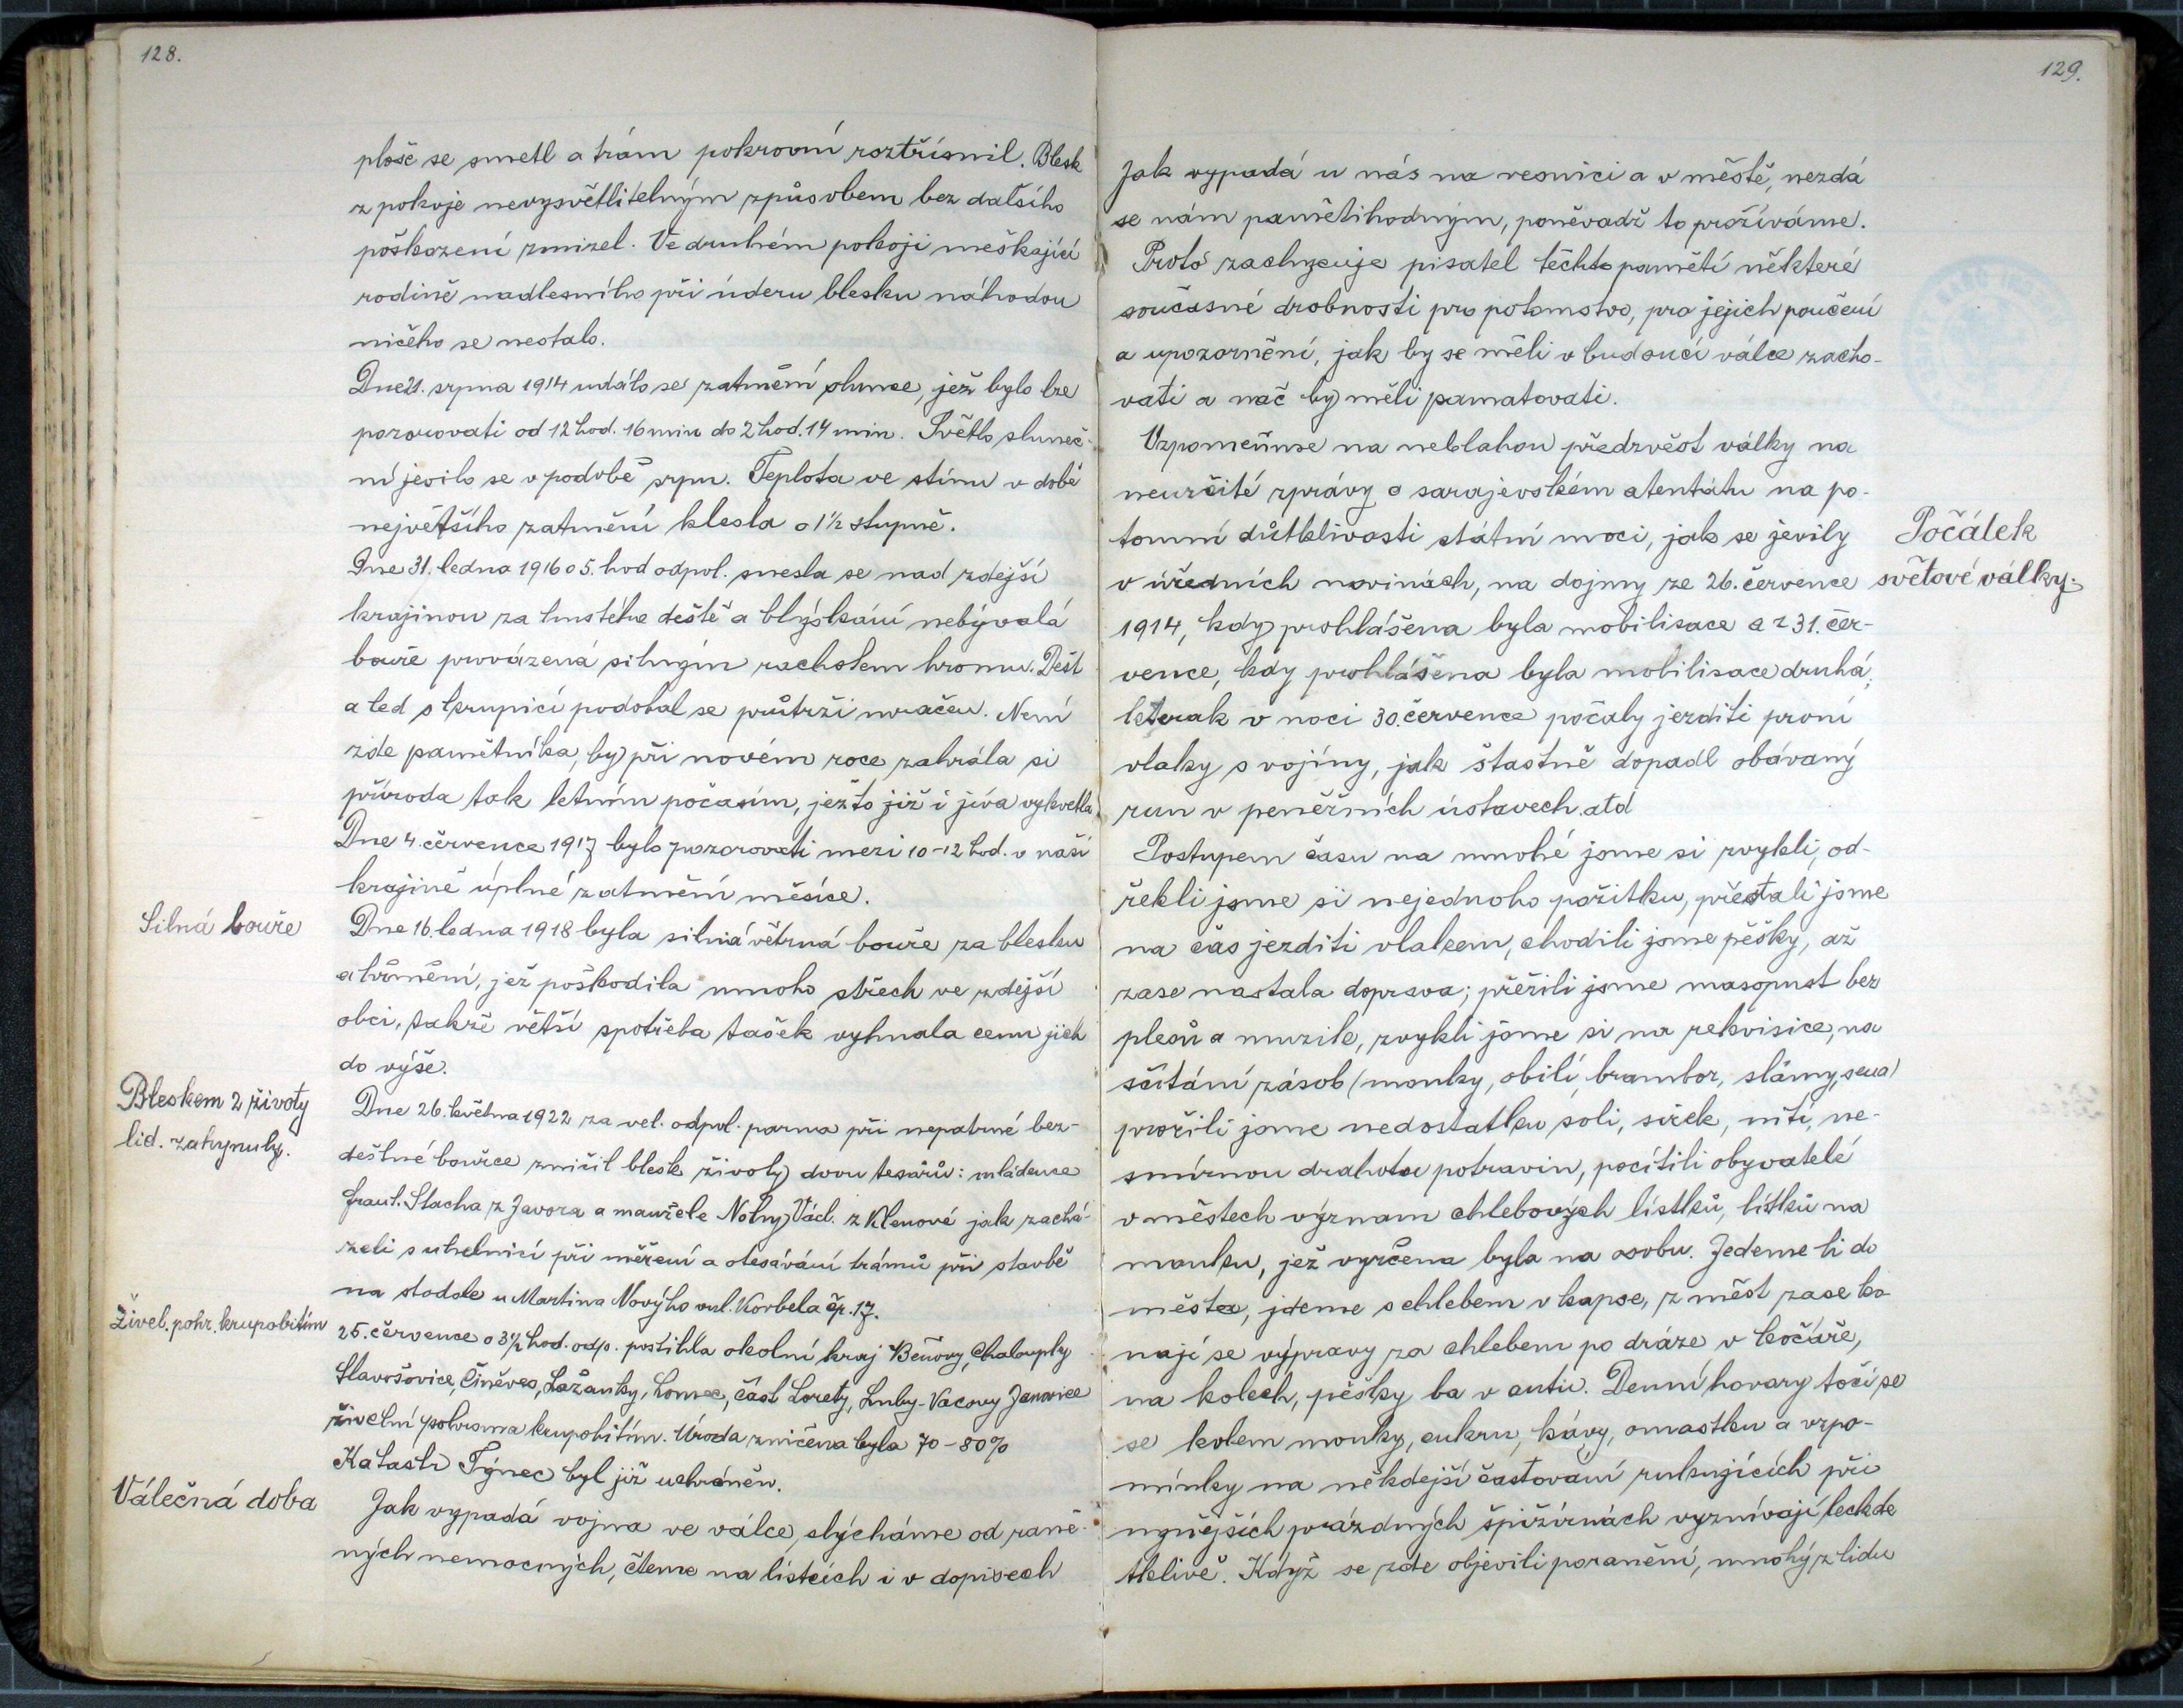 128.
ploše se smetl a trám pokrovní roztřísnil. Blesk
z pokoje nevysvětlitelným způsobem bez dalšího
poškození zmizel. Ve druhém pokoji meškající
rodině nadlesního při úderu blesku náhodou
ničeho se nestalo.
Dne 21. srpna 1914 událo se zatmění slunce, jež bylo lze
pozorovati od 12 hod. 16 min do 2 hod. 14 min. Světlo sluneč-
ní jevilo se v podobě srpu. Teplota ve stínu v době
největšího zatmění klesla o 1½ stupně.
Dne 31. ledna 1916 o 5. hod odpol. snesla se nad zdejší
krajinou za hustého deště a blýskání nebývalá
bouře provázená silným rachotem hromu. Dešť
a led s krupicí podobal se průtrži mračen. Není
zde pamětníka, by při novém roce zahrála si
příroda tak letním počasím, ježto již i jíva vykvetla.
Dne 4. července 1917 bylo pozorovati mezi 10-12 hod. v naší
krajině úplné zatmění měsíce.
Silná bouře
Dne 16. ledna 1918 byla silná větrná bouře za blesku
a hřmění, jež poškodila mnoho střech ve zdejší
obci, takže větší spotřeba tašek vyhnala cenu jich
do výše.
Bleskem 2 životy
lid. zahynuly.
Dne 26. května 1922 za vel. odpol. parna při nepatrné bez-
deštné bouřce zničil blesk životy dvou tesařův: mládence
Frant. Stacha z Javora a manžele Nohy Václ. z Klenové jak zachá-
zeli s uhelnicí při měření a otesávání trámů při stavbě
na stodole u Martina Nového vul. Korbela čp. 17.
Živel. pohr. krupobitím
25. července o 3½ hod. odp. postihla okolní kraj Běňovy, Chaloupky
Slavošovice, Činěves, Lažánky, Lomec, část Lorety, Luby-Vacovy Janovice
živelní pohroma krupobitím. Úroda zničena byla 70-80%
Katastr Týnec byl již uchráněn.
Válečná doba
Jak vypadá vojna ve válce, slýcháme od raně-
ných nemocných, čteme na lístcích i v dopisech
129.
Jak vypadá u nás na vesnici a v městě, nezdá
se nám pamětihodným, poněvadž to prožíváme.
Proto zachycuje pisatel těchto pamětí některé
současné drobnosti pro potomstvo, pro jejich poučení
a upozornění, jak by se měli v budoucí válce zacho-
vati a nač by měli pamatovati.
Vzpomeňme na neblahou předzvěst války na
neurčité zprávy o sarajevském atentátu na po-
tomní důtklivosti státní moci, jak se jevily
v úředních novinách, na dojmy ze 26. července
Počátek
světové války.
1914, kdy prohlášena byla mobilisace a z 31. čer-
vence, kdy prohlášena byla mobilisace druhá,
kterak v noci 30. července počaly jezditi první
vlaky s vojíny, jak šťastně dopadl obávaný
run v peněžních ústavech atd
Postupem času na mnohé jsme si zvykli, od-
řekli jsme si nejednoho požitku, přestali jsme
na čas jezditi vlakem, chodili jsme pěšky, až
zase nastala doprava; přežili jsme masopust bez
plesů a muzik, zvykli jsme si na rekvisice, na
sčítání zásob (mouky, obilí, brambor, slámy, sena)
prožili jsme nedostatku soli, sirek, nití, ne-
smírnou drahotu potravin, pocítili obyvatelé
v městech význam chlebových lístků, lístků na
mouku, jež vyrčena byla na osobu. Jedeme li do
města, jdeme s chlebem v kapse, z měst zase ko-
nají se výpravy za chlebem po dráze v kočáře,
na kolech, pěšky ba v autu. Denní hovary točí se
se kolem mouky, cukru, kávy, omastku a vzpo-
mínky na někdejší častování rukujících při
nynějších prázdných špižírnách vyznívají leckde
tklivě. Když se zde objevili poranění, mnohý z lidu